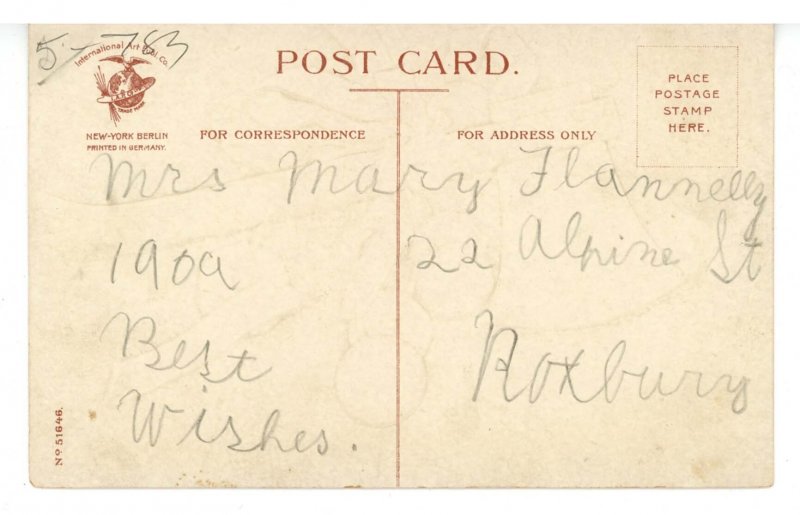 5 - 783
International Art Publ. Co.
TRADE MARK
NEW-YORK BERLIN
PRINTED IN GERMANY.
POST CARD.
PLACE
POSTAGE
STAMP
HERE.
FOR CORRESPONDENCE
FOR ADDRESS ONLY
Mrs Mary Flannelly
1909
22 Alpine St
Best
Wishes.
Roxbury
Nº 51646.